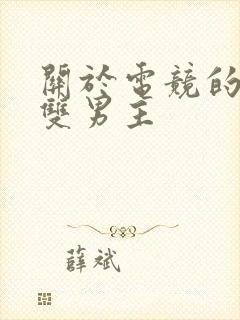 關於電競的
雙男主
薛斌